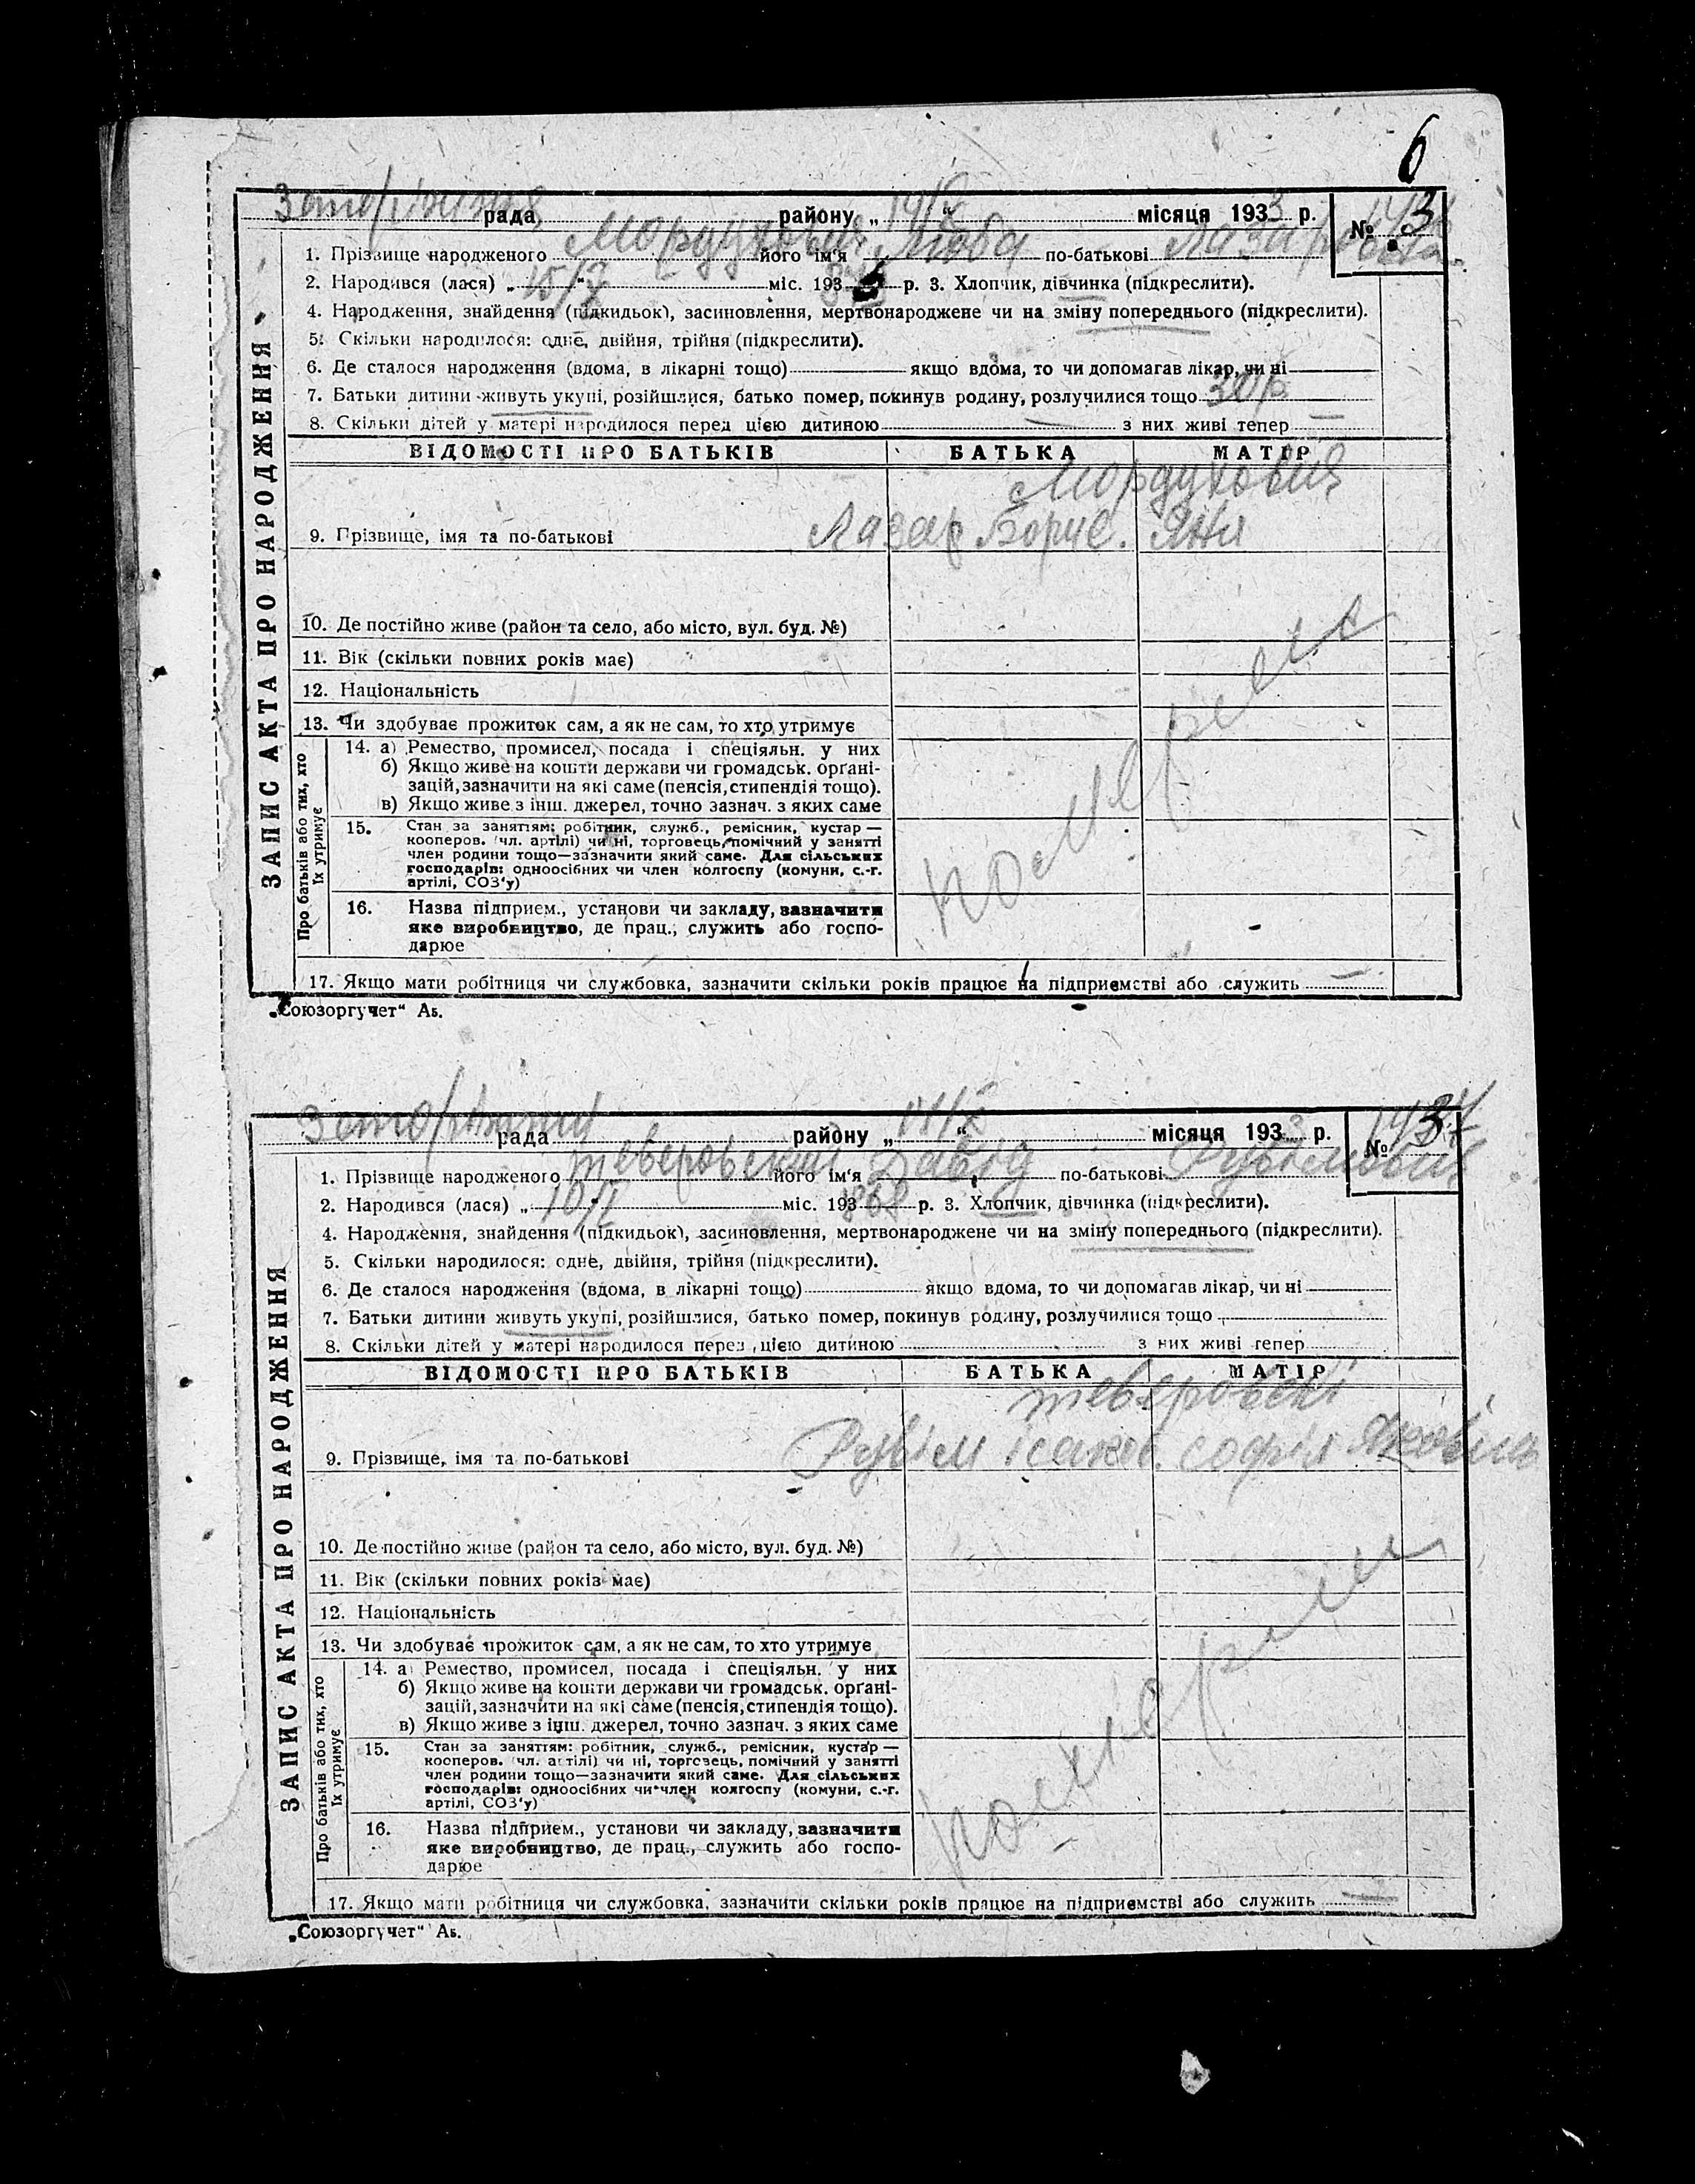 6
рада району „ 14/X “ місяця 1933 р. № 3
1. Прізвище народженого Мордухович його ім'я Люба по-батькові Лазар
2. Народився (лася) „ 15/ “ міс. 193 р. 3. Хлопчик, дівчинка (підкреслити).
4. Народження, знайдення (підкидьок), засиновлення, мертвонароджене чи на зміну попереднього (підкреслити).
5. Скільки народилося: одне, двійня, трійня (підкреслити).
6. Де сталося народження (вдома, в лікарні тощо) якщо вдома, то чи допомагав лікар, чи ні
7. Батьки дитини живуть укупі, розійшлися, батько помер, покинув родину, розлучилися тощо
8. Скільки дітей у матері народилося перед цією дитиною з них живі тепер
ЗАПИС АКТА ПРО НАРОДЖЕННЯ
ВІДОМОСТІ ПРО БАТЬКІВ БАТЬКА МАТІР
Мордухович
9. Прізвище, імя та по-батькові Лазар Борис. Яня
10. Де постійно живе (район та село, або місто, вул. буд. №)
11. Вік (скільки повних років має)
12. Національність
13. Чи здобуває прожиток сам, а як не сам, то хто утримує
Про батьків або тих, хто їх утримує
14. а) Ремество, промисел, посада і спеціяльн. у них
б) Якщо живе на кошти держави чи громадськ. орґані-
зацій, зазначити на які саме (пенсія, стипендія тощо).
в) Якщо живе з інш. джерел, точно зазнач. з яких саме
15. Стан за заняттям: робітник, служб., ремісник, кустар —
кооперов. (чл. артілі) чи ні, торговець, помічний у занятті
член родини тощо—зазначити який саме. Для сільських
господарів: одноосібних чи член колгоспу (комуни, с.-г.
артілі, СОЗ'у)
16. Назва підприєм., установи чи закладу, зазначити
яке виробництво, де прац., служить або госпо-
дарює
17. Якщо мати робітниця чи службовка, зазначити скільки років працює на підприємстві або служить
„Союзоргучет“ Аб.
рада району „ “ місяця 1933 р. № 3
1. Прізвище народженого Теверовский його ім'я Давід по-батькові Рувімович
2. Народився (лася) „ 10/I “ міс. 193 1868 р. 3. Хлопчик, дівчинка (підкреслити).
4. Народження, знайдення (підкидьок), засиновлення, мертвонароджене чи на зміну попереднього (підкреслити).
5. Скільки народилося: одне, двійня, трійня (підкреслити).
6. Де сталося народження (вдома, в лікарні тощо) якщо вдома, то чи допомагав лікар, чи ні
7. Батьки дитини живуть укупі, розійшлися, батько помер, покинув родину, розлучилися тощо
8. Скільки дітей у матері народилося перед цією дитиною з них живі тепер
ЗАПИС АКТА ПРО НАРОДЖЕННЯ
ВІДОМОСТІ ПРО БАТЬКІВ БАТЬКА МАТІР
Теверовскі
9. Прізвище, імя та по-батькові Рувім Ісаков. Софія
10. Де постійно живе (район та село, або місто, вул. буд. №)
11. Вік (скільки повних років має)
12. Національність
13. Чи здобуває прожиток сам, а як не сам, то хто утримує
Про батьків або тих, хто їх утримує
14. а) Ремество, промисел, посада і спеціяльн. у них
б) Якщо живе на кошти держави чи громадськ. орґані-
зацій, зазначити на які саме (пенсія, стипендія тощо).
в) Якщо живе з інш. джерел, точно зазнач. з яких саме
15. Стан за заняттям: робітник, служб., ремісник, кустар —
кооперов. (чл. артілі) чи ні, торговець, помічний у занятті
член родини тощо—зазначити який саме. Для сільських
господарів: одноосібних чи член колгоспу (комуни, с.-г.
артілі, СОЗ'у)
16. Назва підприєм., установи чи закладу, зазначити
яке виробництво, де прац., служить або госпо-
дарює
17. Якщо мати робітниця чи службовка, зазначити скільки років працює на підприємстві або служить
„Союзоргучет“ Аб.